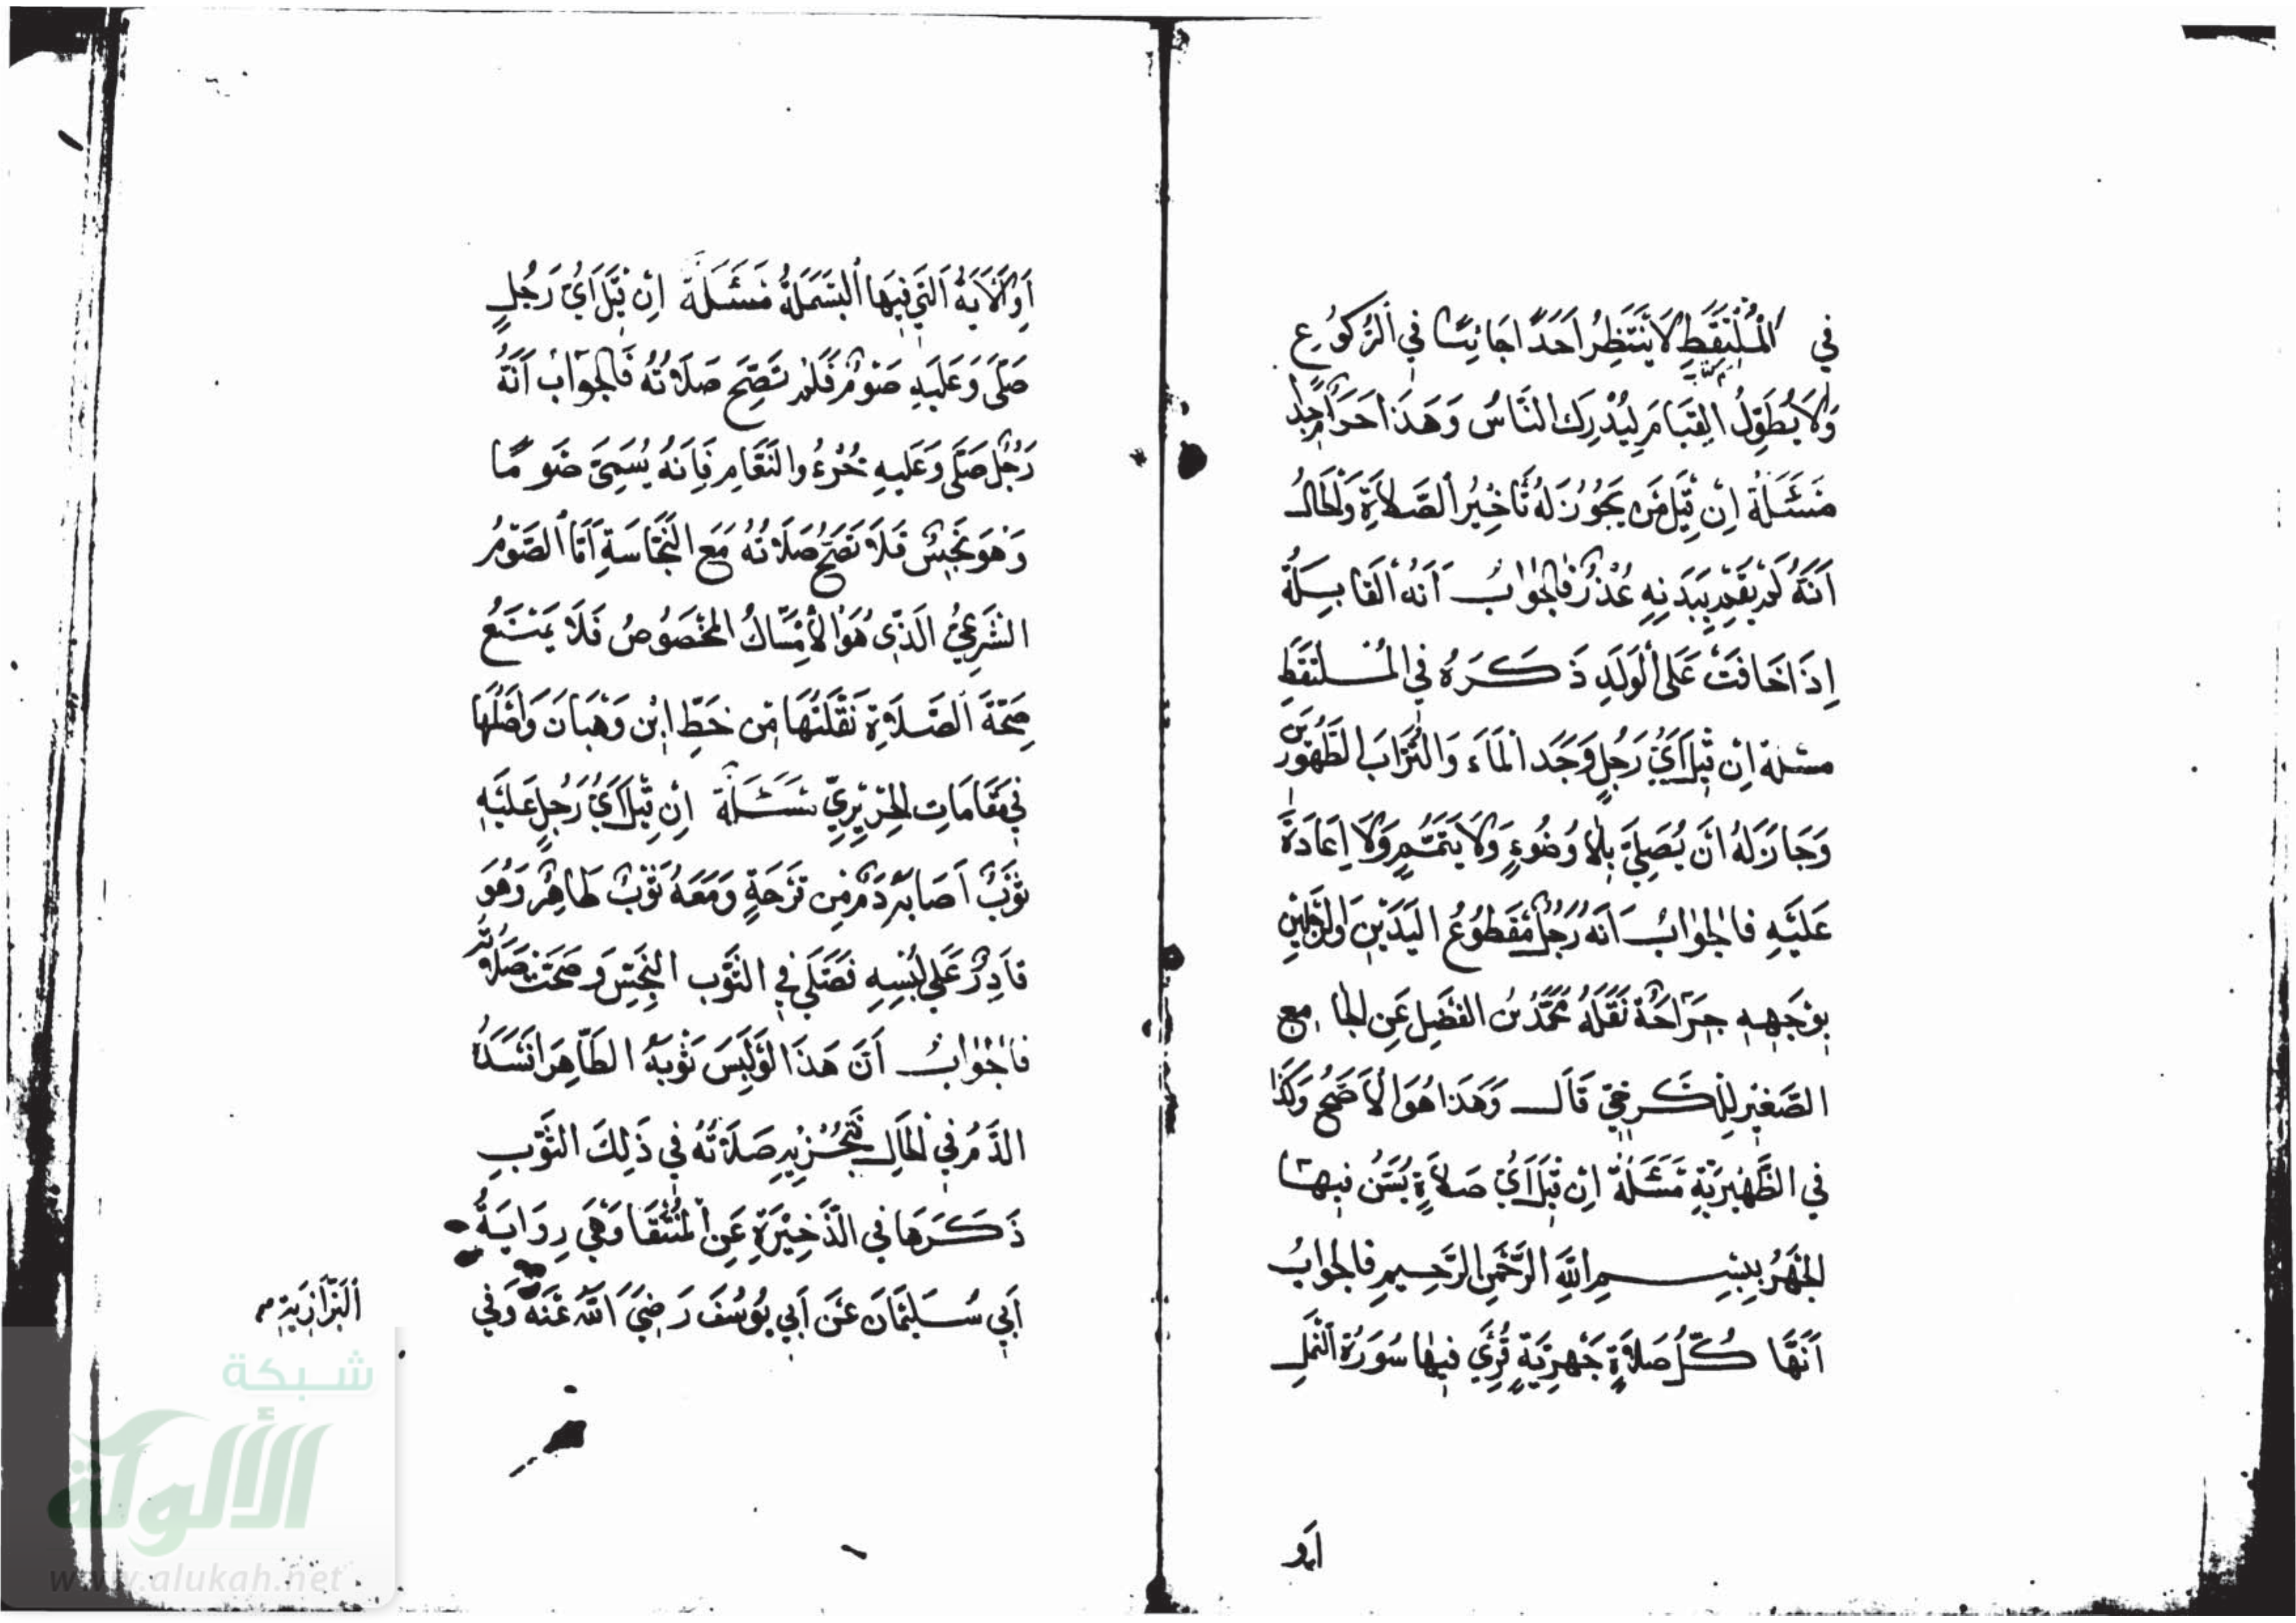 في المُلْتَقَطِ لَا يَنْتَظِرُ أَحَدًا جَانِيًا في الرُّكُوعِ
وَلَا يُطَوِّلُ القِيَامَ لِيُدْرِكَ النَّاسُ وَهَذَا حَرَامٌ
مَسْئَلَةٌ اِنْ قِيْلَ مَنْ يَجُوزُ لَهُ تَأْخِيْرُ الصَّلَاةِ وَالحَالُ
أَنَّهُ لَمْ يَقُمْ بِبَدَنِهِ عُذْرٌ فَالجَوَابُ أَنَّهُ القَابِلَةُ
إِذَا خَافَتْ عَلَى الْوَلَدِ ذَكَرَهُ فِي المُلْتَقَطِ
مسئلة اِنْ قِيْلَ أَيُّ رَجُلٍ وَجَدَ المَاءَ وَالتُّرَابَ الطَّهُوْرَيْنِ
وَجَازَ لَهُ أَنْ يُصَلِّيَ بِلَا وُضُوْءٍ وَلَا تَيَمُّمٍ وَلَا إِعَادَةَ
عَلَيْهِ فَالجَوَابُ أَنَّهُ رَجُلٌ مَقْطُوْعُ اليَدَيْنِ وَالرِّجْلَيْنِ
بِوَجْهِهِ جِرَاحَةٌ نَقَلَهُ مُحَمَّدُ بْنُ الفَضْلِ عَنِ الجامع
الصَّغِيْرِ لِلْكَرْخِيِّ قَالَ وَهَذَا هُوَ الأَصَحُّ وَكَذَا
فِي الظَّهِيْرِيَّةِ مَسْئَلَةٌ اِنْ قِيْلَ أَيُّ صَلَاةٍ يُسَنُّ فِيْهَا
الجَهْرُ بِبِسْمِ اللَّهِ الرَّحْمَنِ الرَّحِيْمِ فَالجَوَابُ
أَنَّهَا كُلُّ صَلَاةٍ جَهْرِيَّةٍ قُرِئَ فِيهَا سُوْرَةُ النَّمْلِ
أو
أَوِ الْآيَةُ الَّتِي فِيْهَا البَسْمَلَةُ مَسْئَلَةٌ اِنْ قِيْلَ أَيُّ رَجُلٍ
صَلَّى وَعَلَيْهِ صَوْمٌ فَلَمْ تَصِحَّ صَلَاتُهُ فَالجَوَابُ أَنَّهُ
رَجُلٌ صَلَّى وَعَلَيْهِ خُرْءُ النَّعَامِ فَإِنَّهُ يُسَمَّى صَوْمًا
وَهُوَ نَجِسٌ فَلَا تَصِحُّ صَلَاتُهُ مَعَ النَّجَاسَةِ أَمَّا الصَّوْمُ
الشَّرْعِيُّ الَّذِي هُوَ الْإِمْسَاكُ المَخْصُوْصُ فَلَا يَمْنَعُ
صِحَّةَ الصَّلَاةِ نَقَلْتُهَا مِنْ خَطِّ ابْنِ وَهْبَانَ وَأَصْلُهَا
فِي مَقَامَاتِ الحَرِيْرِيِّ مَسْئَلَةٌ اِنْ قِيْلَ أَيُّ رَجُلٍ عَلَيْهِ
ثَوْبٌ أَصَابَهُ دَمٌ مِنْ قَرْحَةٍ وَمَعَهُ ثَوْبٌ طَاهِرٌ وَهُوَ
قَادِرٌ عَلَى لُبْسِهِ فَصَلَّى فِي الثَّوْبِ النَّجِسِ وَصَحَّتْ صَلَاتُهُ
فَالجَوَابُ أَنَّ هَذَا لَوْ لَبِسَ ثَوْبَهُ الطَّاهِرَ أَفْسَدَهُ
الدَّمُ فِي الحَالِ فَتُجْزِيْهِ صَلَاتُهُ فِي ذَلِكَ الثَّوْبِ
ذَكَرَهَا فِي الذَّخِيْرَةِ عَنِ المُنْتَقَا وَهِيَ رِوَايَةُ
أَبِي سُلَيْمَانَ عَنْ أَبِي يُوْسُفَ رَضِيَ اللَّهُ عَنْهُ وَفِي
البَزَّازِيَّةِ
شبكة
الألوكة
www.alukah.net